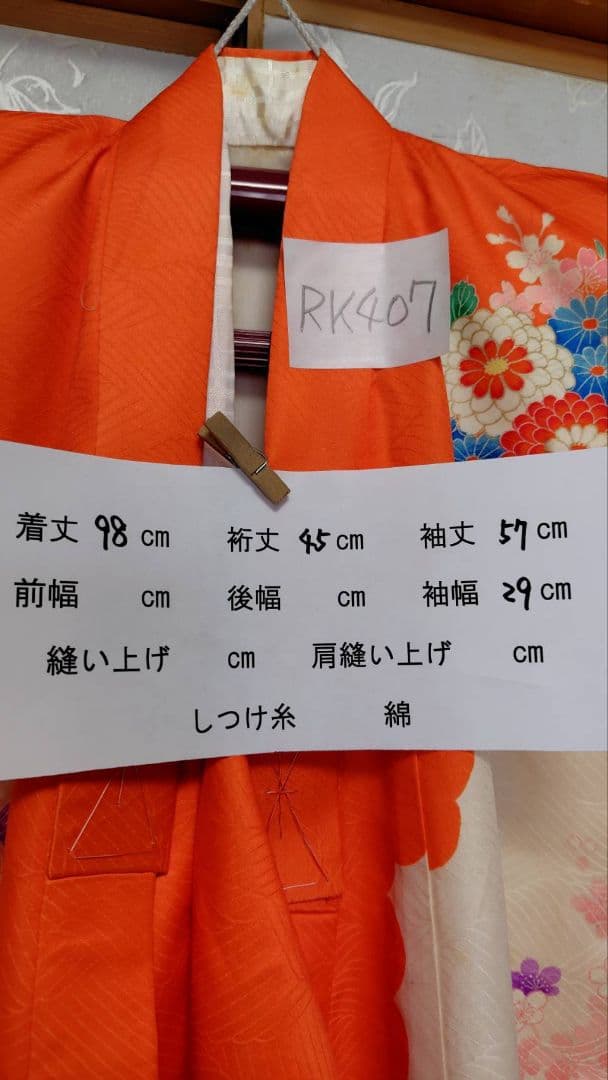 RK407
着丈 98 cm 裄丈 45 cm 袖丈 57 cm
前幅 cm 後幅 cm 袖幅 29 cm
縫い上げ cm 肩縫い上げ cm
しつけ糸 綿